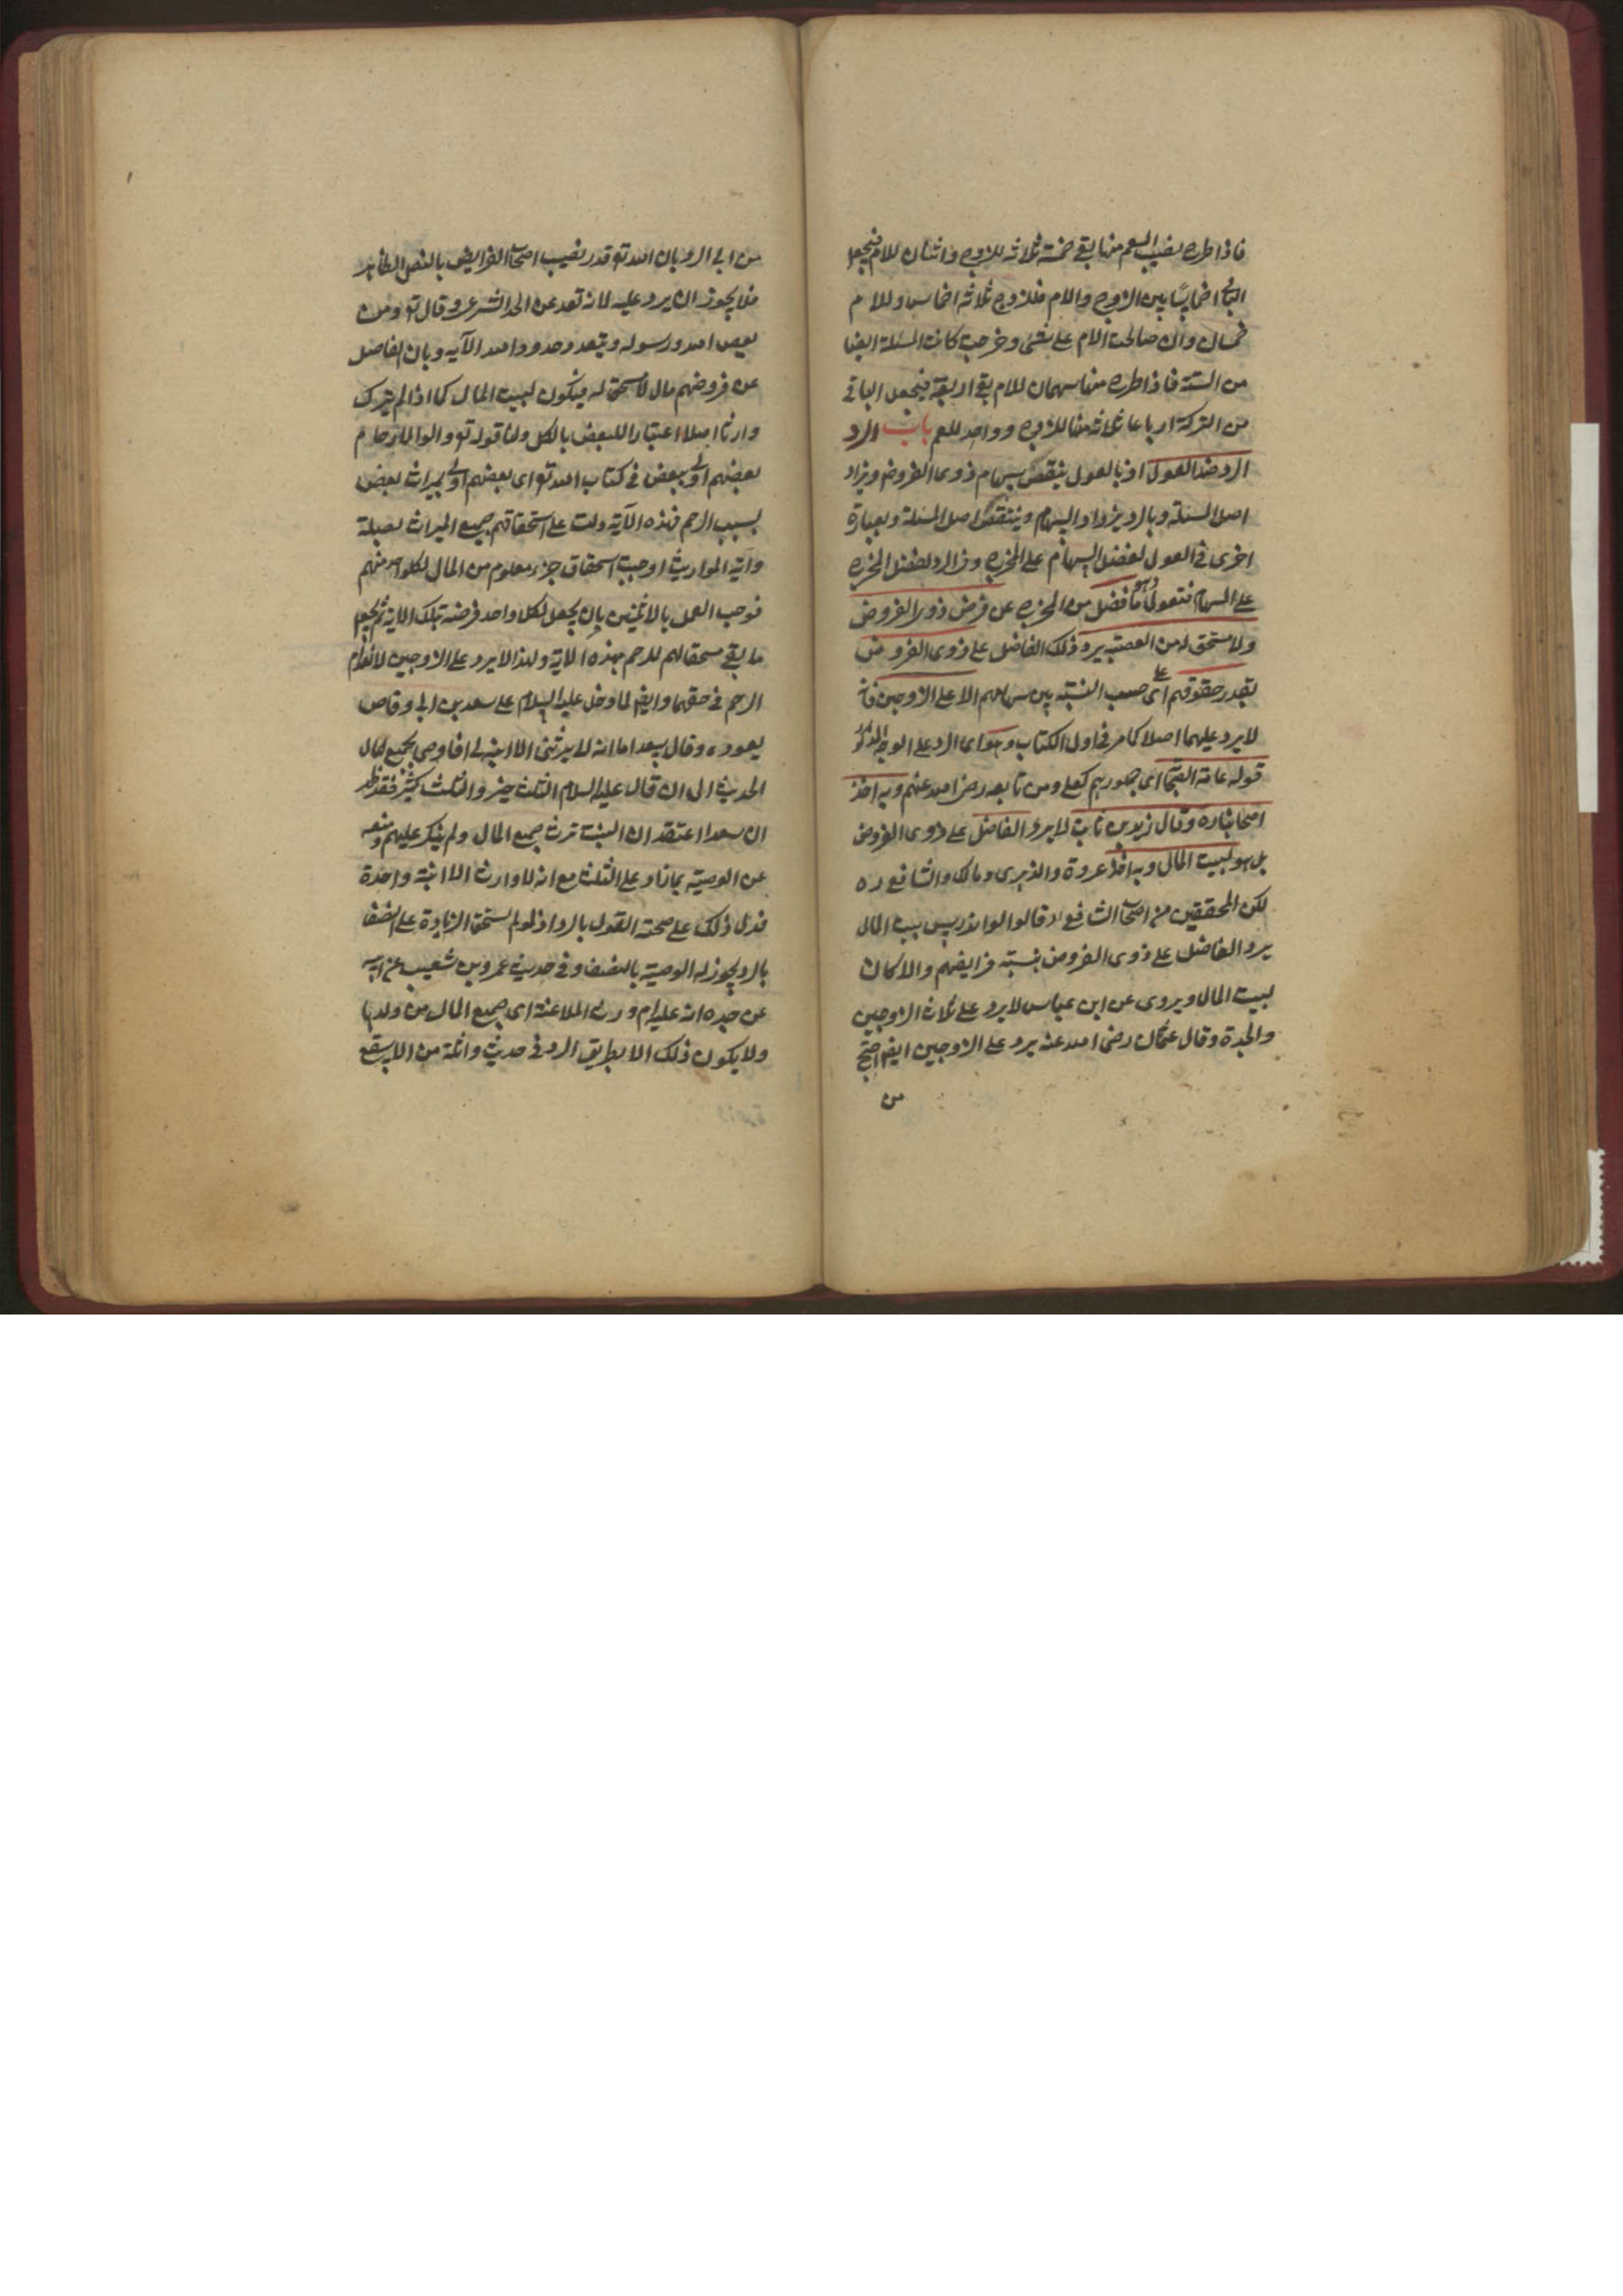 فاذا طرح نصيب العم منها بقي خمسة ثلاثة للزوج واثنان للام فيجعل
الباقى اخماسًا بين الزوج والام فللزوج ثلاثة اخماس وللام
خمسان وان صالحت الام على شئ وخرجت كانت المسئلة ايضا
من الستة فاذا طرح منها سهمان للام بقى اربعة فيجعل الباقى
من التركة ارباعا ثلاثة منها للزوج وواحد للعم باب الرد
الرد ضد العول اذ بالعول ينقص سهام ذوى الفروض ويزاد
اصل المسئلة وبالرد يزداد السهام وينتقص اصل المسئلة وبعبارة
اخرى فى العول تفضل السهام على المخرج وفى الرد يفضل المخرج
على السهام فتقول ما فضل من المخرج عن فرض ذوى الفروض
ولا مستحق له من العصبة يرد ذلك الفاضل على ذوى الفروض
بقدر حقوقهم اى على حسب النسبة بين سهامهم الا على الزوجين فانه
لا يرد عليهما اصلا كما مر فى اول الكتاب وهو اى الرد على الوجه المذكور
قول عامة الصحابة اى جمهورهم كعلى ومن تابعه رضى الله عنهم وبه اخذ
اصحابنا ره وقال زيد بن ثابت لا يرد الفاضل على ذوى الفروض
بل هو لبيت المال وبه اخذ عروة والزهرى ومالك والشافعى ره
لكن المحققين من اصحاب الشافعى قالوا بيت المال
يرد الفاضل على ذوى الفروض بنسبة فرايضهم والا كان
لبيت المال ويروى عن ابن عباس لا يرد على ثلاث الزوجين
والجدة وقال عثمان رضى الله عنه يرد على الزوجين ايضا احتج
من
من ابى الرد بان الله تع قدر نصيب اصحاب الفرايض بالنص الظاهر
فلا يجوز ان يرد عليه لانه تعد عن الحد الشرعى وقال تع ومن
يعص الله ورسوله ويتعد حدوده الله الآية وبان الفاضل
عن فروضهم مال لا مستحق له فيكون لبيت المال كما اذا لم يترك
وارثا اصلا اعتبارا للبعض بالكل ولنا قوله تع واولوا الارحام
بعضهم اولى ببعض فى كتاب الله تع اى بعضهم اولى بميراث بعض
بسبب الرحم فهذه الآية دلت على استحقاقهم جميع الميراث بصلة
وآية المواريث اوجبت استحقاق جزء معلوم من المال لكل واحد منهم
فوجب العمل بالآيتين بان يجعل لكل واحد فرضه بتلك الاية ثم يجعل
ما بقى مستحقا لهم للرحم بهذه الاية ولهذا لا يرد على الزوجين لانعدام
الرحم فى حقهما وايضا لما دخل عليه السلام على سعد بن ابى وقاص
يعوده وقال سعد اما انه لا يرثنى الا ابنة لى افاوصى بجميع مالى
الحديث الى ان قال عليه السلام الثلث خير والثلث كثير فقد ظهر
ان سعدا اعتقد ان البنت ترث جميع المال ولم ينكر عليهم ومنعه
عن الوصية بما زاد على الثلث مع انه لا وارث له الا ابنة واحدة
فدل ذلك على صحة القول بالرد اذ لو لم تستحق الزيادة على النصف
بالرد يجوز له الوصية بالنصف وفى حديث عمرو بن شعيب عن ابيه
عن جده انه عليه السلام ورث الملاعنة اى جميع المال من ولدها
ولا يكون ذلك الا بطريق الرد فى حديث واثلة من الاسقع